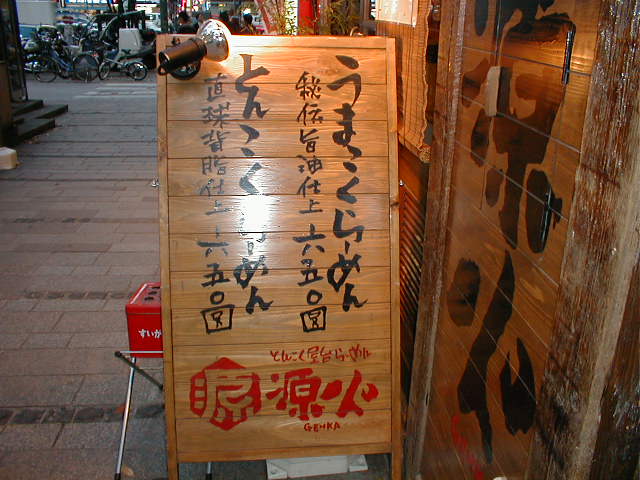 うまこくらーめん
秘伝旨油仕上 六五〇圓
とんこくらーめん
直球背脂仕上 六五〇圓
とんこく屋台らーめん
源 源火
GENKA
すいが